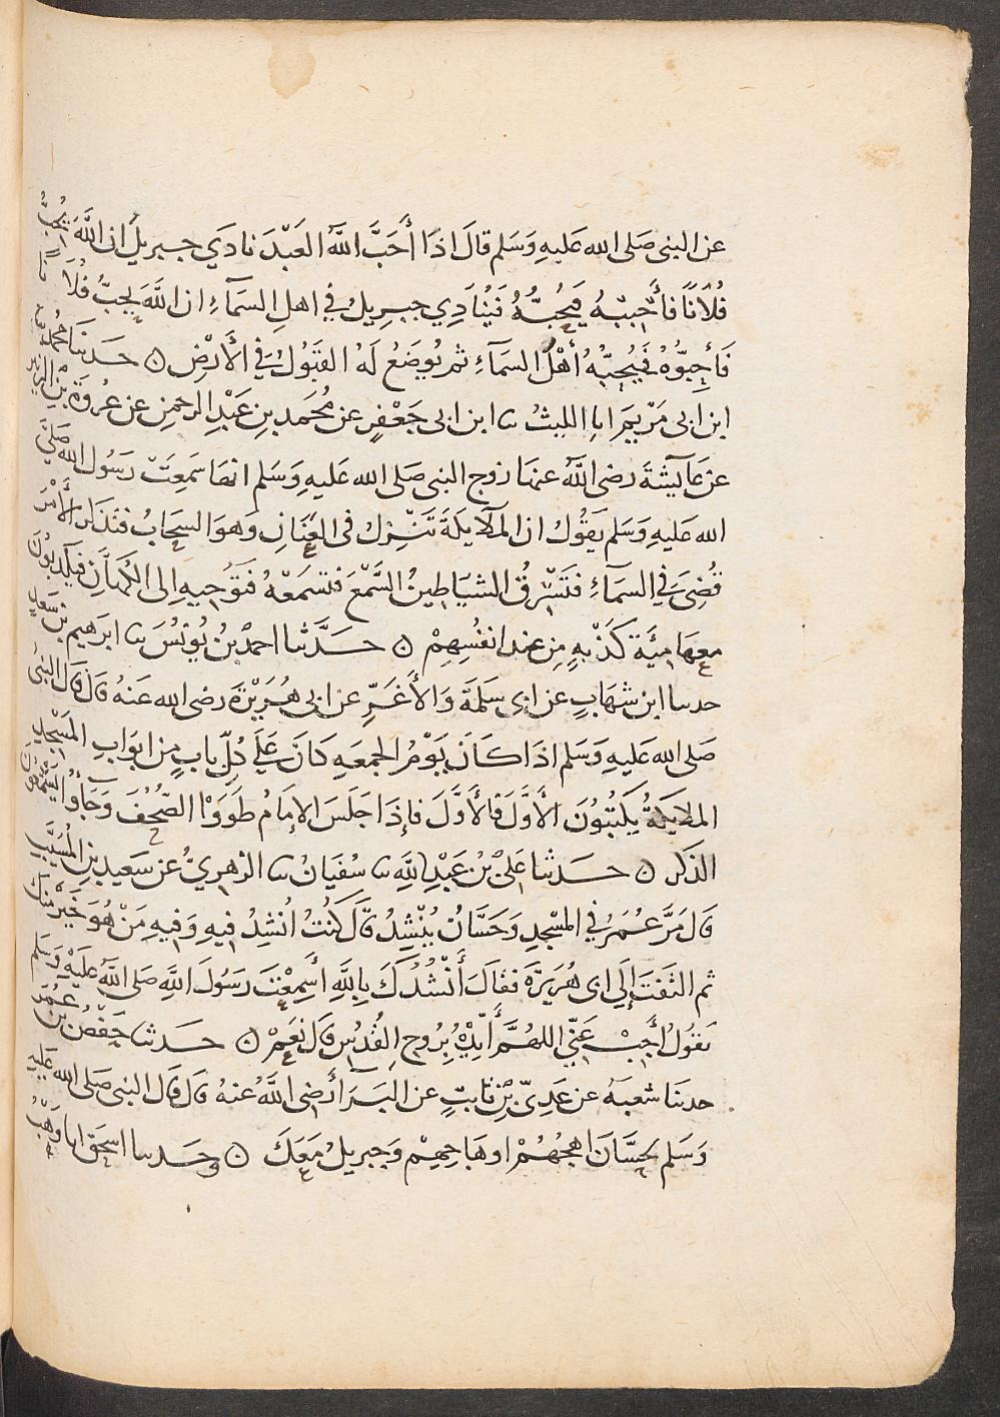 عن النبى صَلى الله عَليهِ وَسَلم قالَ اذَا أَحَبَّ اللَّهُ العَبْدَ نادَي جبريلَ ان اللَّهَ يُحِبُّ
فُلَانًا فَأَحْبِبْهُ فَيُحِبُّهُ فَيُنَادِي جبرِيلُ فِي اهلِ السَمآءِ ان اللَّهَ يحِبُّ فُلَانًا
فَأَحِبُّوْهُ فَيُحِبُّهُ أَهْلُ السَمآءِ ثم يُوضَعُ لَهُ القَبُولُ فِي الأَرْضِ ه حَدثنَا مُحمَّد
ابن ابى مَرْيمَ ابا الليثُ ثنا ابن ابى جَعْفرٍ عن مُحَمدِ بنِ عَبْدِ الرحمنِ عن عُروَةَ بْنِ الزُبَير
عن عَآيشَةَ رضى اللَّهُ عنهَا زوج النبى صَلى الله عَليهِ وَسَلم انهَا سَمِعَتْ رَسُول الله صَلَّى
الله عَليهِ وَسَلم يَقُولُ ان المَلآيكَةَ تَنْزِلُ فى العَنَانِ وَهوَ السحَابُ فتَذكُر الأَمْرَ
قُضِىَ فِي السَمآءِ فتَسْتَرِقُ الشيَاطِينُ السَّمْعَ فتَسمَعُهُ فتوُحِيهِ الى الكُهَّانِ فيَكْذِبُونَ
معهَا مِئَةَ كَذْبِهٍ مِن عند انفُسِهِمْ ه حَدَّثنا احمدُ بْنُ يُونُسَ ثنا ابرَهِيم بْن سَعدٍ
حدثنا ابن شهَابٍ عن ابى سَلَمَةَ وَالأَغَرِّ عن ابى هُرَيْرَةَ رضى الله عَنهُ قالَ قالَ النبىُ
صَلى الله عَليهِ وَسَلم اذَا كَانَ يَوْمُ الجمعَهِ كانَ عَلَي كلِّ بابٍ مِن ابوَابِ المَسْجِدِ
المَلايكَةُ يَكتُبُونَ الأَوَّلَ فَالأَوَّلَ فإِذَا جَلَسَ الإمَامُ طَوَوْا الصُّحُفَ وَجَاؤُا يَسْتَمِعُونَ
الذكر ه حَدثنا عَلِىُّ بْنُ عَبْدِ اللَّهِ ثنا سُفيَانُ ثنا الزهرِيُّ عن سَعِيد بنِ المُسَيَّبِ
قَالَ مَرَّ عُمَرُ فِي المسْجِدِ وَحَسَّانُ يُنْشِدُ قالَ كُنْتُ اُنشِدُ فيهِ وَفِيهِ مَنْ هُوَ خَيرٌ مِنكَ
ثم التَفَتَ إِلَي ابى هُرَيرَةَ فقالَ أَنْشُدُكَ بِاللَّهِ أَسَمِعْتَ رَسُولَ اللَّهِ صَلى اللَّهُ عَلَيْهِ وَسَلم
يَقولُ أَجِبْ عَنِّي اللهُمَّ أَيِّدْهُ بِرُوحِ القُدُسِ قالَ نَعَمْ ه حَدثنا حَفْصُ بْنُ عُمَر
حدثنَا شعبَهُ عن عَدِىّ بْنِ ثابتٍ عن البَرَاءِ رَضى اللَّهُ عنهُ قالَ قال النبى صَلى الله عَليهِ
وَسَلم لحسَّانَ اهجُهُمْ او هَاجِهِمْ وَجِبرِيلُ مَعَكَ ه وحَدثنا اسحَق ابا وَهْبُ